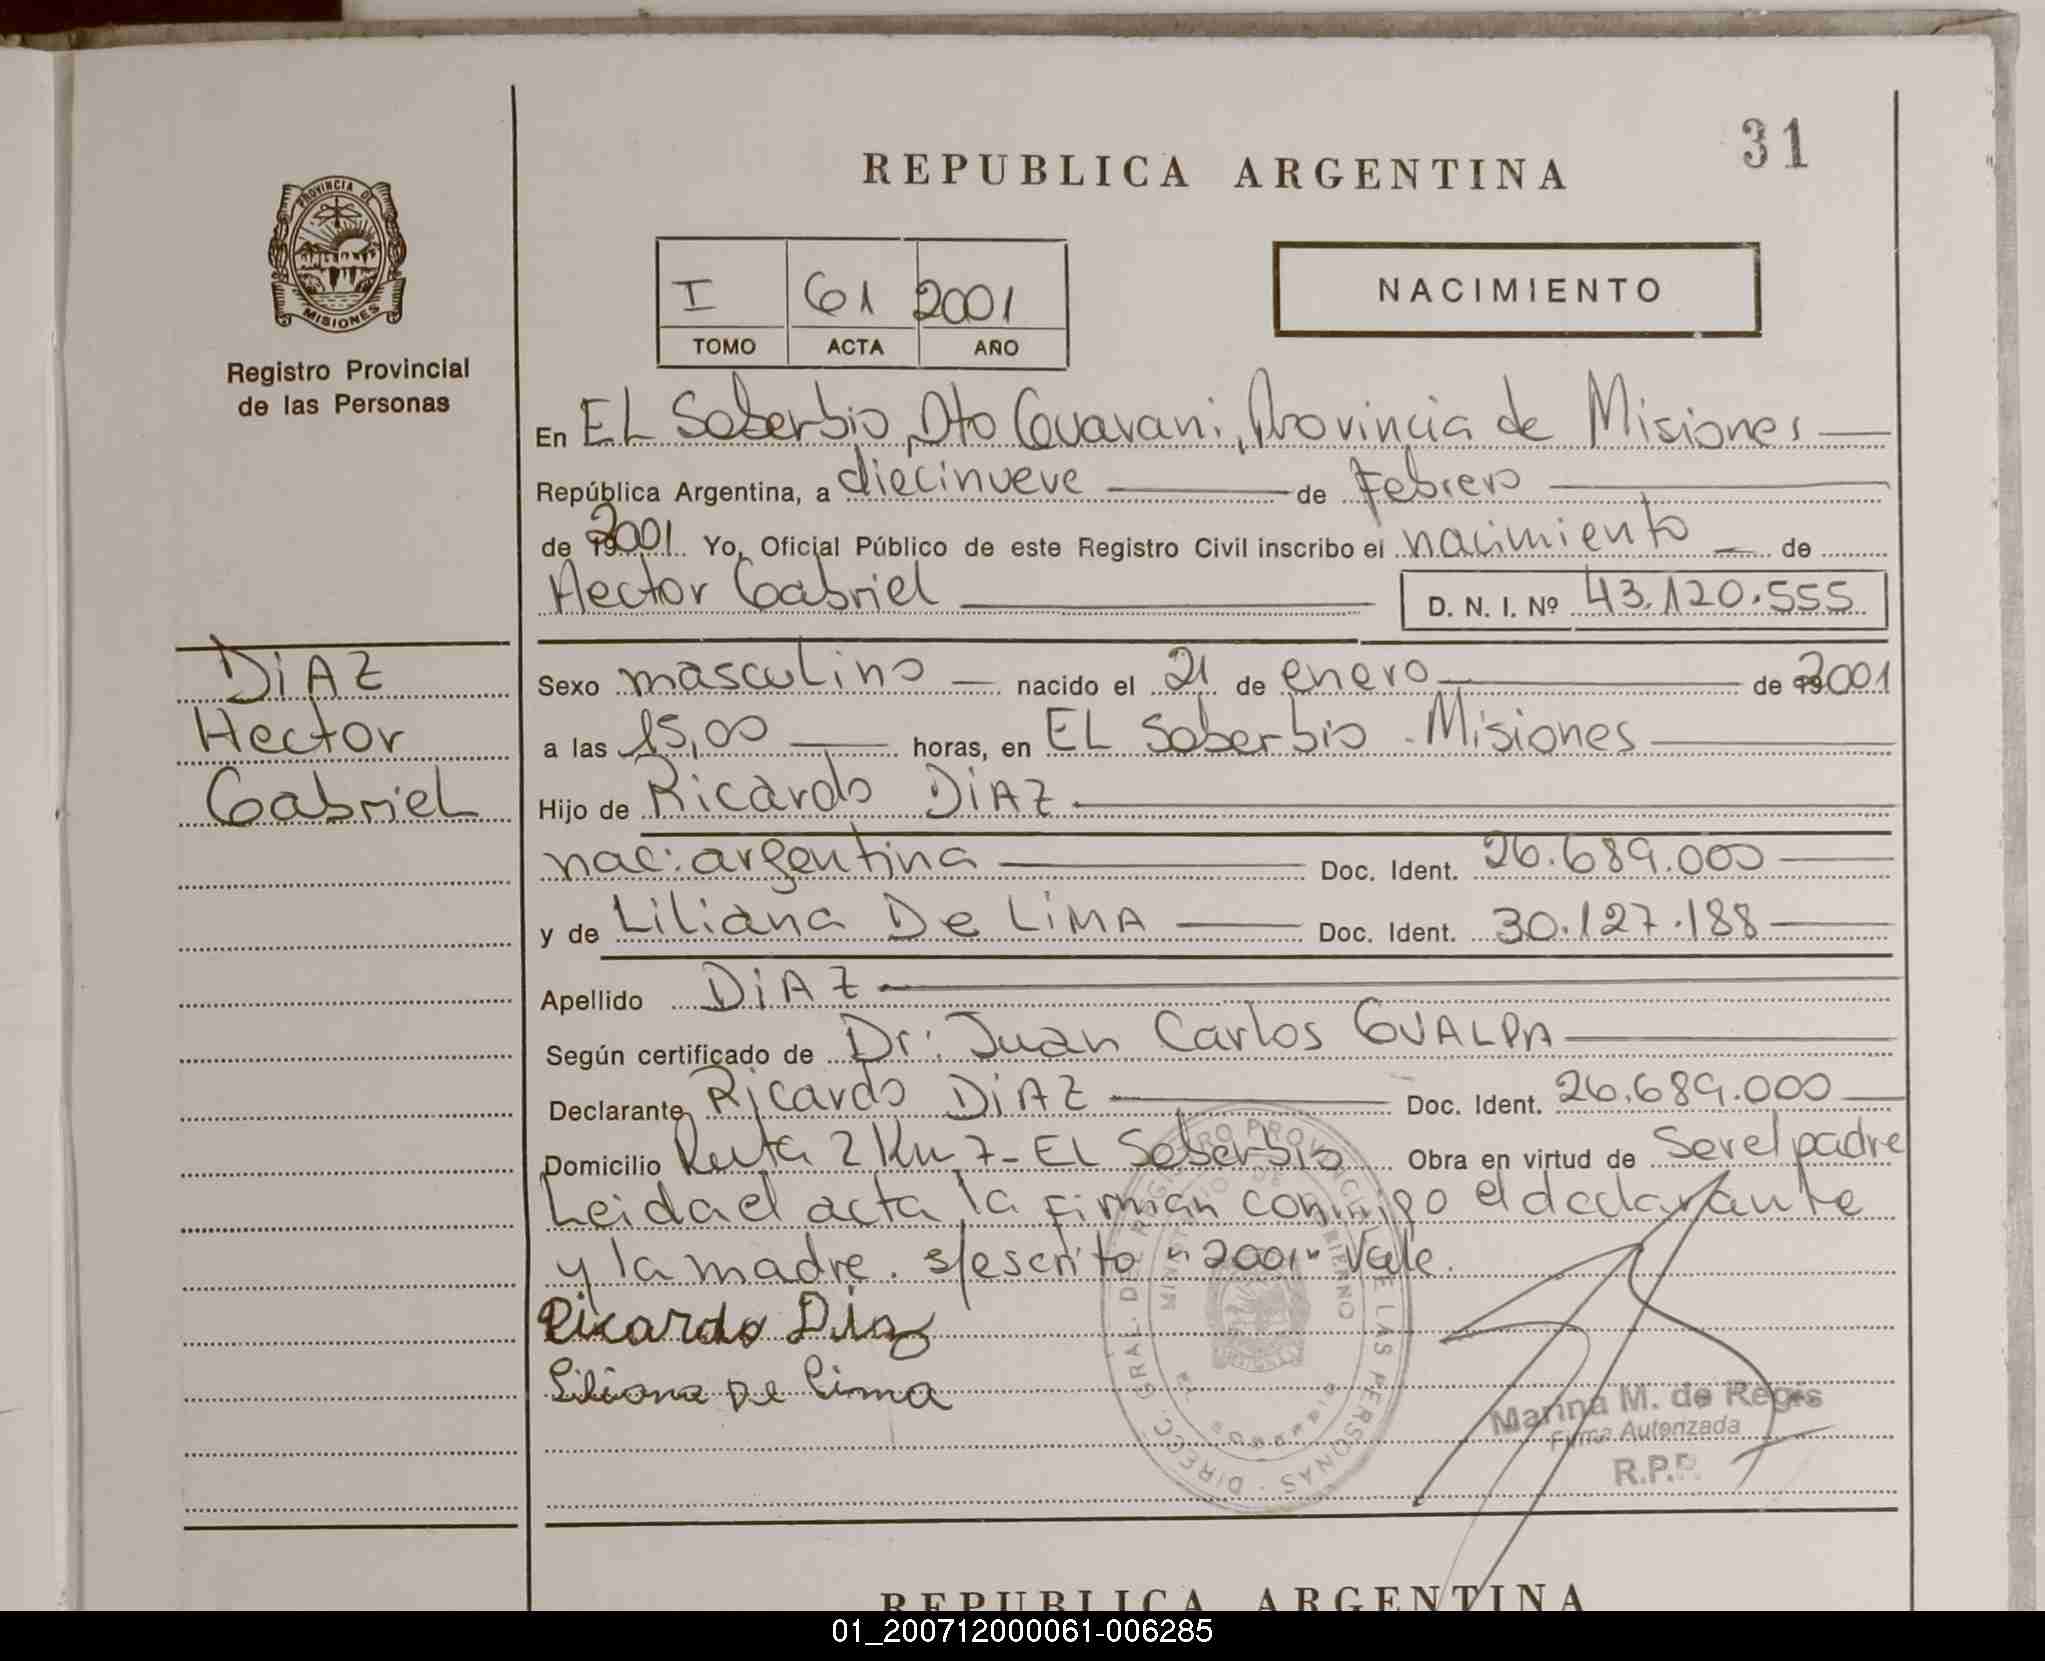 31
REPUBLICA ARGENTINA
PROVINCIA DE
MISIONES
Registro Provincial
de las Personas
I 61 2001
TOMO ACTA AÑO
NACIMIENTO
En EL Soberbio, Dto Guarani, Provincia de Misiones
República Argentina, a diecinueve de Febrero
de 2001. Yo, Oficial Público de este Registro Civil inscribo el nacimiento de
Hector Gabriel D. N. I. Nº 43.120.555
DiAZ
Hector
Gabriel
Sexo masculino nacido el 21 de enero de 2001
a las 15,00 horas, en EL Soberbio - Misiones
Hijo de Ricardo DiAZ
nac: argentina Doc. Ident. 26.689.000
y de Liliana De LiMA Doc. Ident. 30.127.188
Apellido DiAZ
Según certificado de Dr: Juan Carlos GUALPA
Declarante Ricardo DiAZ Doc. Ident. 26.689.000
Domicilio Ruta 2 Km 7 - EL Soberbio Obra en virtud de Ser el padre
Leida el acta la firman conmigo el declarante
y la madre. s/escrito "2001" Vale.
Ricardo Diaz
Liliana De Lima
DIRECC. GRAL. DEL REGISTRO PROVINCIAL DE LAS PERSONAS
MINISTERIO DE GOBIERNO
Marina M. de Regis
Firma Autorizada
R.P.P.
REPUBLICA ARGENTINA
01_200712000061-006285